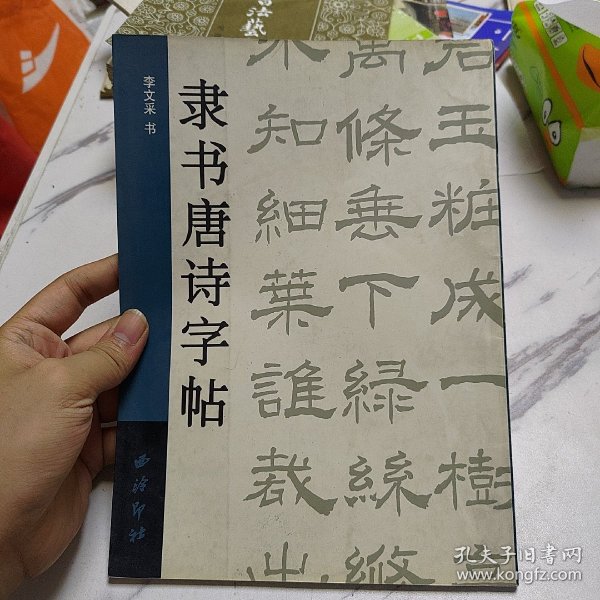 李文采 书
隶书唐诗字帖
西泠印社
碧玉粧成一樹
萬條垂下綠絲絛
不知細葉誰裁出
孔夫子旧书网
www.kongfz.com